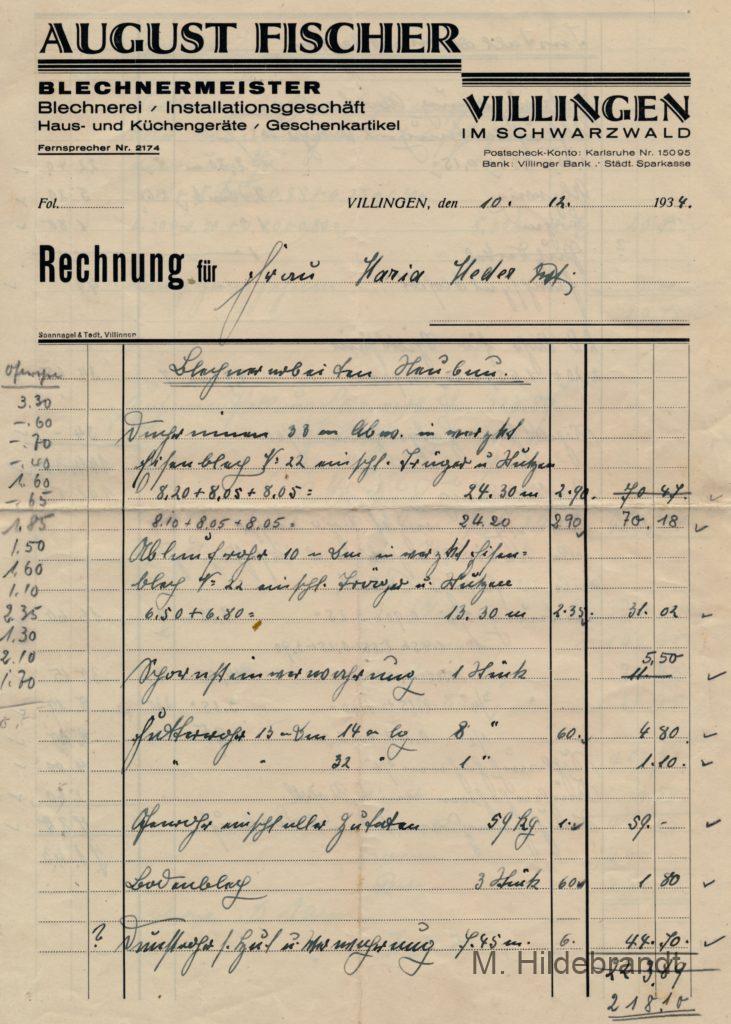 AUGUST FISCHER
BLECHNERMEISTER
Blechnerei / Installationsgeschäft
Haus- und Küchengeräte / Geschenkartikel
Fernsprecher Nr. 2174
VILLINGEN
IM SCHWARZWALD
Postscheck-Konto: Karlsruhe Nr. 15095
Bank: Villinger Bank / Städt. Sparkasse
Fol. VILLINGEN, den 10. 12. 1934.
Rechnung für Frau Maria Neder
Spannagel & Tedt, Villingen
Blechnerarbeiten Neubau.
3.30
-.60
-.70
-.40
1.60
-.65
1.85
1.50
1.60
1.10
2.35
1.30
2.10
1.70
Dachrinnen 33 m Abw. in verzkt
Eisenblech N= 22 einschl. Träger u Stutzen
8.20+8.05+8.05= 24.30 m 2.90. 70 47
8.10+8.05+8.05= 24.20 290 70. 18
Ablaufrohr 10 m Dm in verzkt Eisen=
blech N= 22 einschl. Träger u. Stutzen
6.50+6.80= 13.30 m 2.35. 31. 02
Schornsteinverwahrung 1 Stück 11.— 5,50
Futterrohr 13 m Dm 14 m lg 8 " 60. 4 80
" " 32 " 1 " 1.10.
Ofenrohr einschl aller Zutaten 59 kg 1.- 59.-
Bodenblech 3 Stück 60 1 80
? Dunstrohr s. Hut u Verwahrung 7.45 m. 6. 44.70.
22 3.89
218.10
M. Hildebrandt